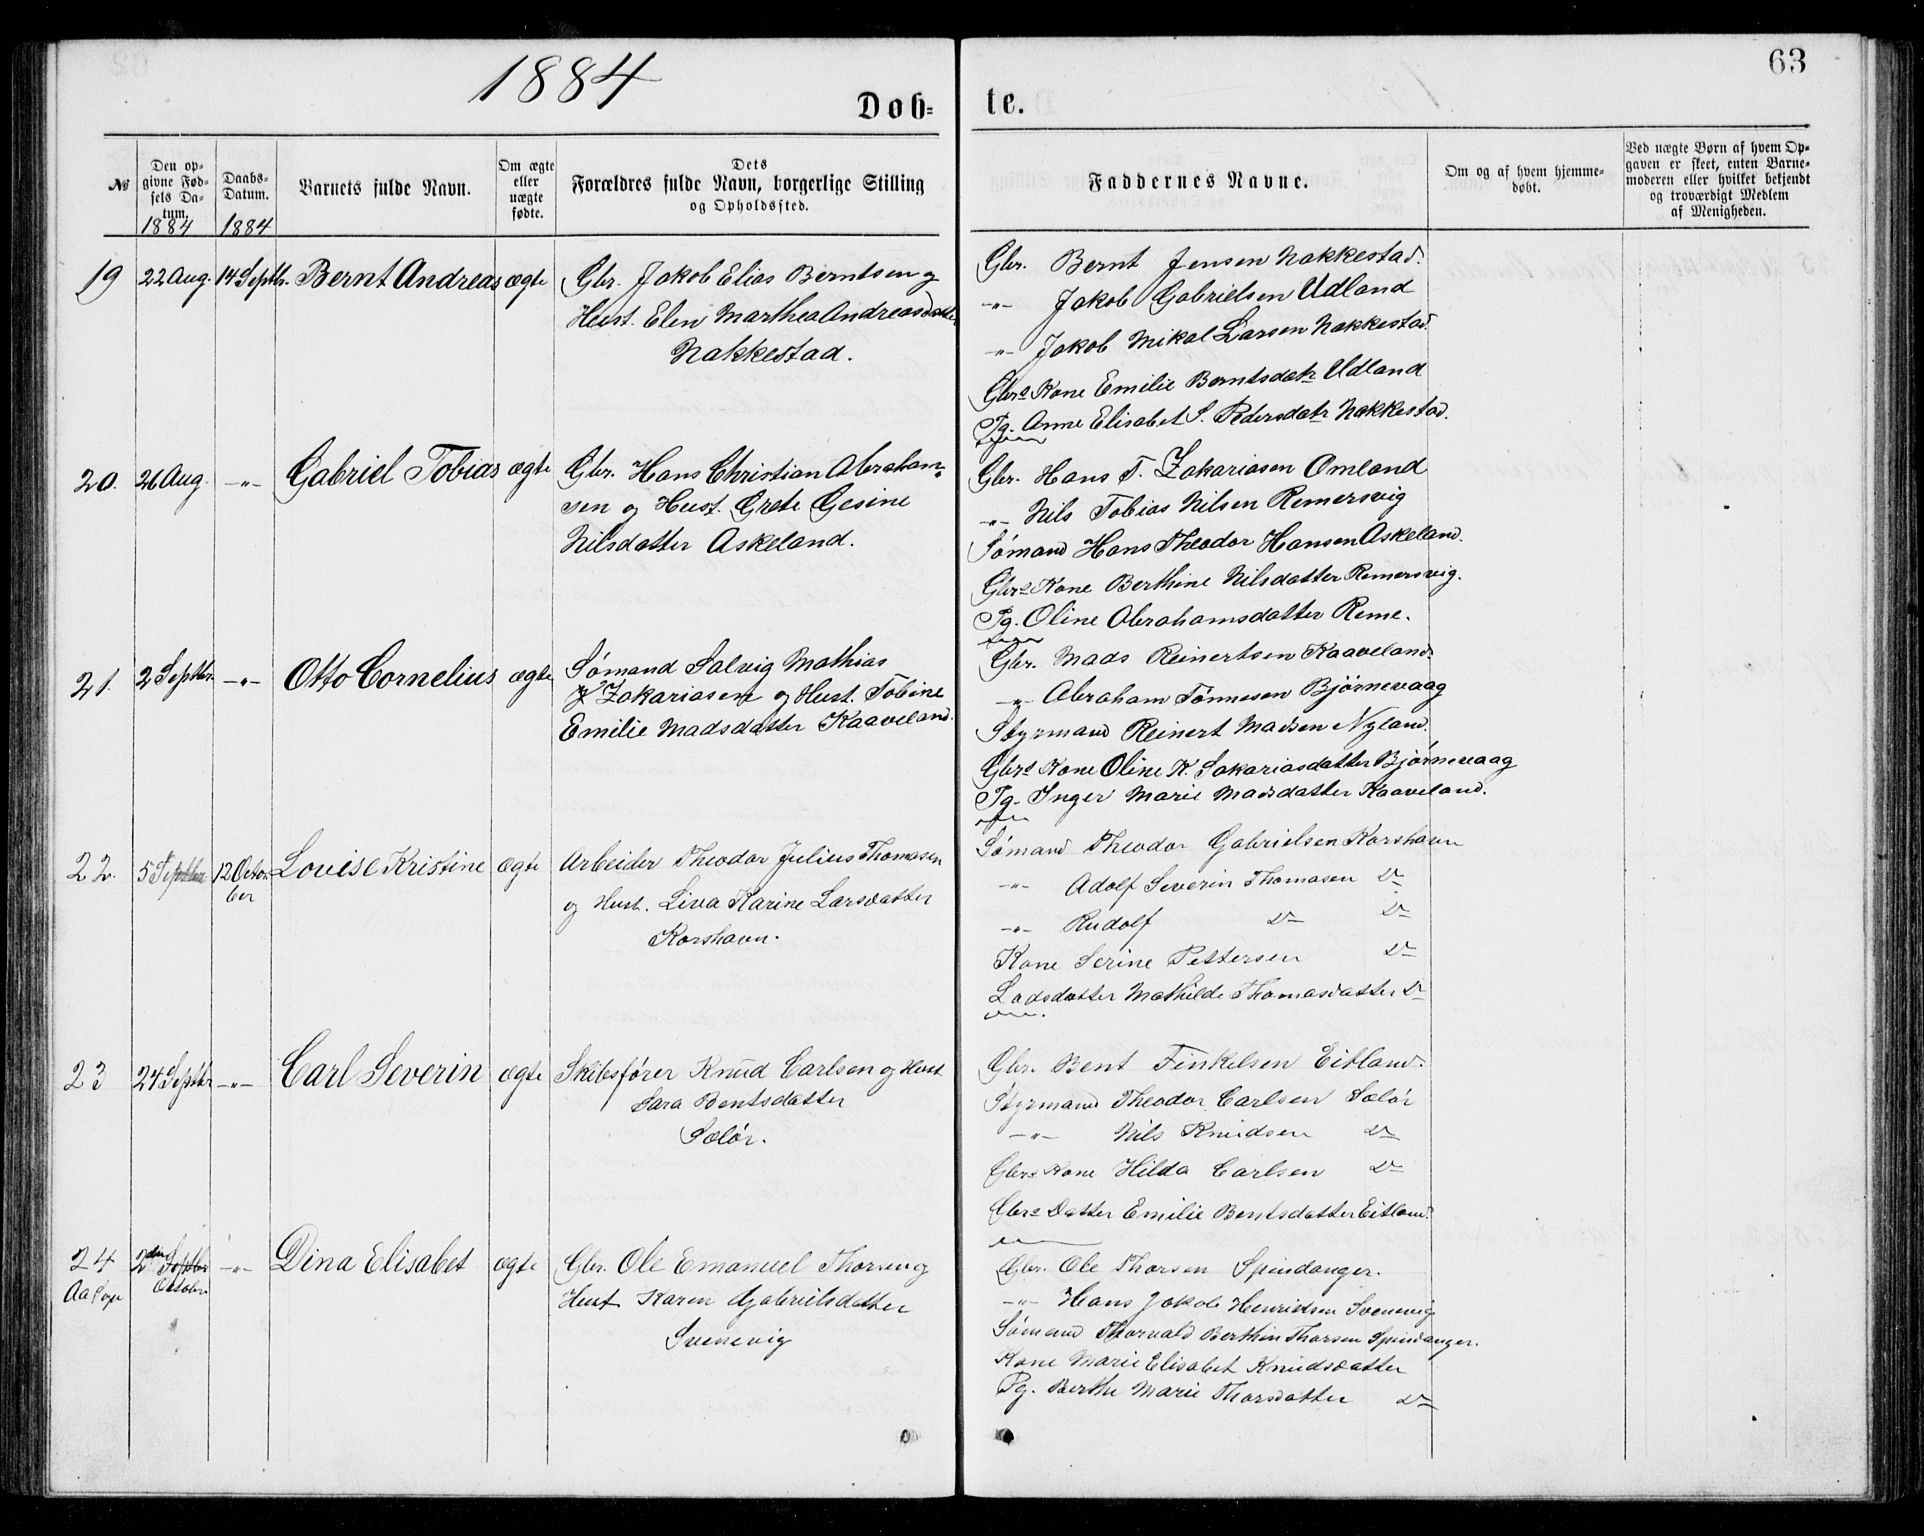 1884
63
Døb-
te.
№
Den op-
givne Fød-
sels Da-
tum.
1884
Daabs-
Datum.
1884
Barnets fulde Navn.
Om ægte
eller
uægte
fødte.
Dets
Forældres fulde Navn, borgerlige Stilling
og Opholdssted.
Faddernes Navne.
Om og af hvem hjemme-
døbt.
Ved uægte Børn af hvem Op-
gaven er skeet, enten Barne-
moderen eller hvilket bekjendt
og troværdigt Medlem
af Menigheden.
19 22 Aug. 14 Septbr. Bernt Andreas ægte
Gbr. Jakob Elias Berntsen og
Hust. Elen Marthea Andreasdatter
Nakkestad.
Gbr. Bernt Jensen Nakkestad.
-"- Jakob Gabrielsen Udland
-"- Jakob Mikal Larsen Nakkestad.
Gbrs Kone Emilie Berntsdatr Udland
Pg. Anne Elisabet S. Pedersdatr Nakkestad.
20. 26 Aug. -"- Gabriel Tobias ægte
Gbr. Hans Christian Abraham-
sen og Hust. Grete Gesine
Nilsdatter Askeland.
Gbr. Hans T. Zakariasen Omland
-"- Nils Tobias Nilsen Remersvig
Sømand Hans Theodor Hansen Askeland.
Gbrs Kone Berthine Nilsdatter Remersvig.
Pg. Oline Abrahamsdatter Reme.
21. 2 Septbr. -"- Otto Cornelius ægte
Sømand Salvig Mathias
Zakariasen og Hust. Tobine
Emilie Madsdatter Kaaveland.
Gbr. Mads Reinertsen Kaaveland.
-"- Abraham Tønnesen Bjørnevaag
Styrmand Reinert Madsen Nyland.
Gbrs Kone Oline K. Sakariasdatter Bjørnevaag
Pg. Inger Marie Madsdatter Kaaveland.
22. 5 Septbr 12 Octo-
ber
Louise Kristine ægte
Arbeider Theodor Julius Thomasen
og Hust. Liva Karine Larsdatter
Korshavn.
Sømand Theodor Gabrielsen Korshavn
-"- Adolf Severin Thomasen Do
-"- Rudolf Do Do
Kone Serine Pettersen Do
Lodsdatter Mathilde Thomasdatter Do
23 24 Septbr -"- Carl Severin ægte
Skibsfører Knud Carlsen og Hust
Sara Bentsdatter
Sælør.
Gbr. Bent Finkelsen Eitland.
Styrmand Theodor Carlsen Sælør
-"- Nils Knudsen Do
Gbrs Kone Hilda Carlsen Do
Gbrs Datter Emilie Bentsdatter Eitland.
24 2den Septbr -"- Dina Elisabet ægte
October
Gbr. Ole Emanuel Thorsen og
Hust Karen Gabrielsdatter
Svenevig
Gbr. Ole Thorsen Spindanger.
-"- Hans Jakob Henriksen Svenevig
Sømand Thorvald Berthin Thorsen Spindanger.
Kone Marie Elisabet Knudsdatter
Pg. Berthe Marie Thorsdatter Do